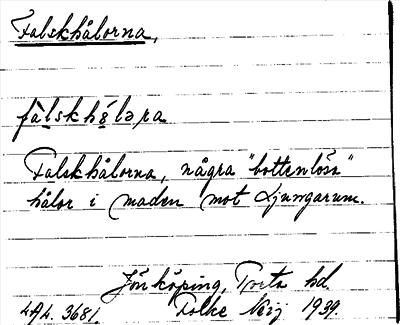 Falskhålorna,
fàlskhó̱lɜrɳa
Falskhålorna, några "bottenlösa"
hålor i maden mot Ljungarum.
Jönköping, Tveta hd.
ULMA. 3681. Folke
1939.